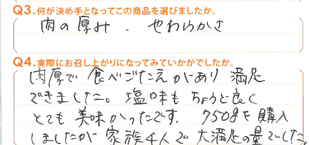 Q3.何が決め手となってこの商品を選びましたか。
肉の厚み、やわらかさ
Q4.実際にお召し上がりになってみていかがでしたか。
肉厚で食べごたえがあり満足
できました。塩味もちょうど良く
とても美味かったです。750gを購入
しましたが家族4人で大満足の量でした。